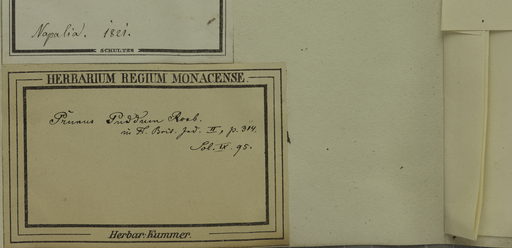 Napalia. 1821.
SCHULTES
HERBARIUM REGIUM MONACENSE.
Prunus Puddum Roxb.
in Fl. Brit. Ind. II, p. 314.
Sol. IX. 95.
Herbar-Kammer.